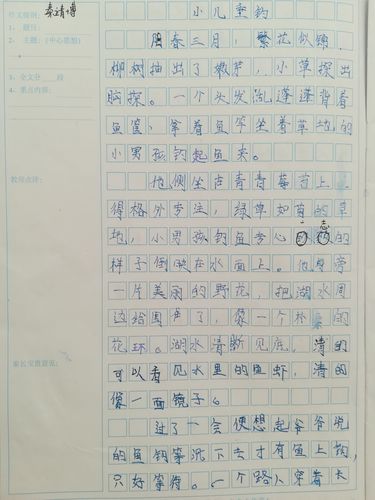 秦靖博
小儿垂钓
阳春三月，繁花似锦，
柳树抽出了嫩芽，小草探出
脑探。一个头发乱蓬蓬背着
鱼筐，拿着鱼竿坐着草地的
小男孩钓起鱼来。
他侧坐在青青莓苔上，
得格外专注，绿草如茵的草
地，小男孩钓鱼专心 的
样子倒映在水面上。他身旁
一片美丽的野花，把湖水周
边给围 了，像一个 的
花环。湖水清晰见底，清的
可以看见水里的鱼虾，清的
像一面镜子。
过了一会便想起爷爷说
的鱼钩等沉下去才有鱼上钩，
只好等待。一个路人穿着长
主题：(中心思想)
3、全文分 段
4、重点内容：
教师点评：